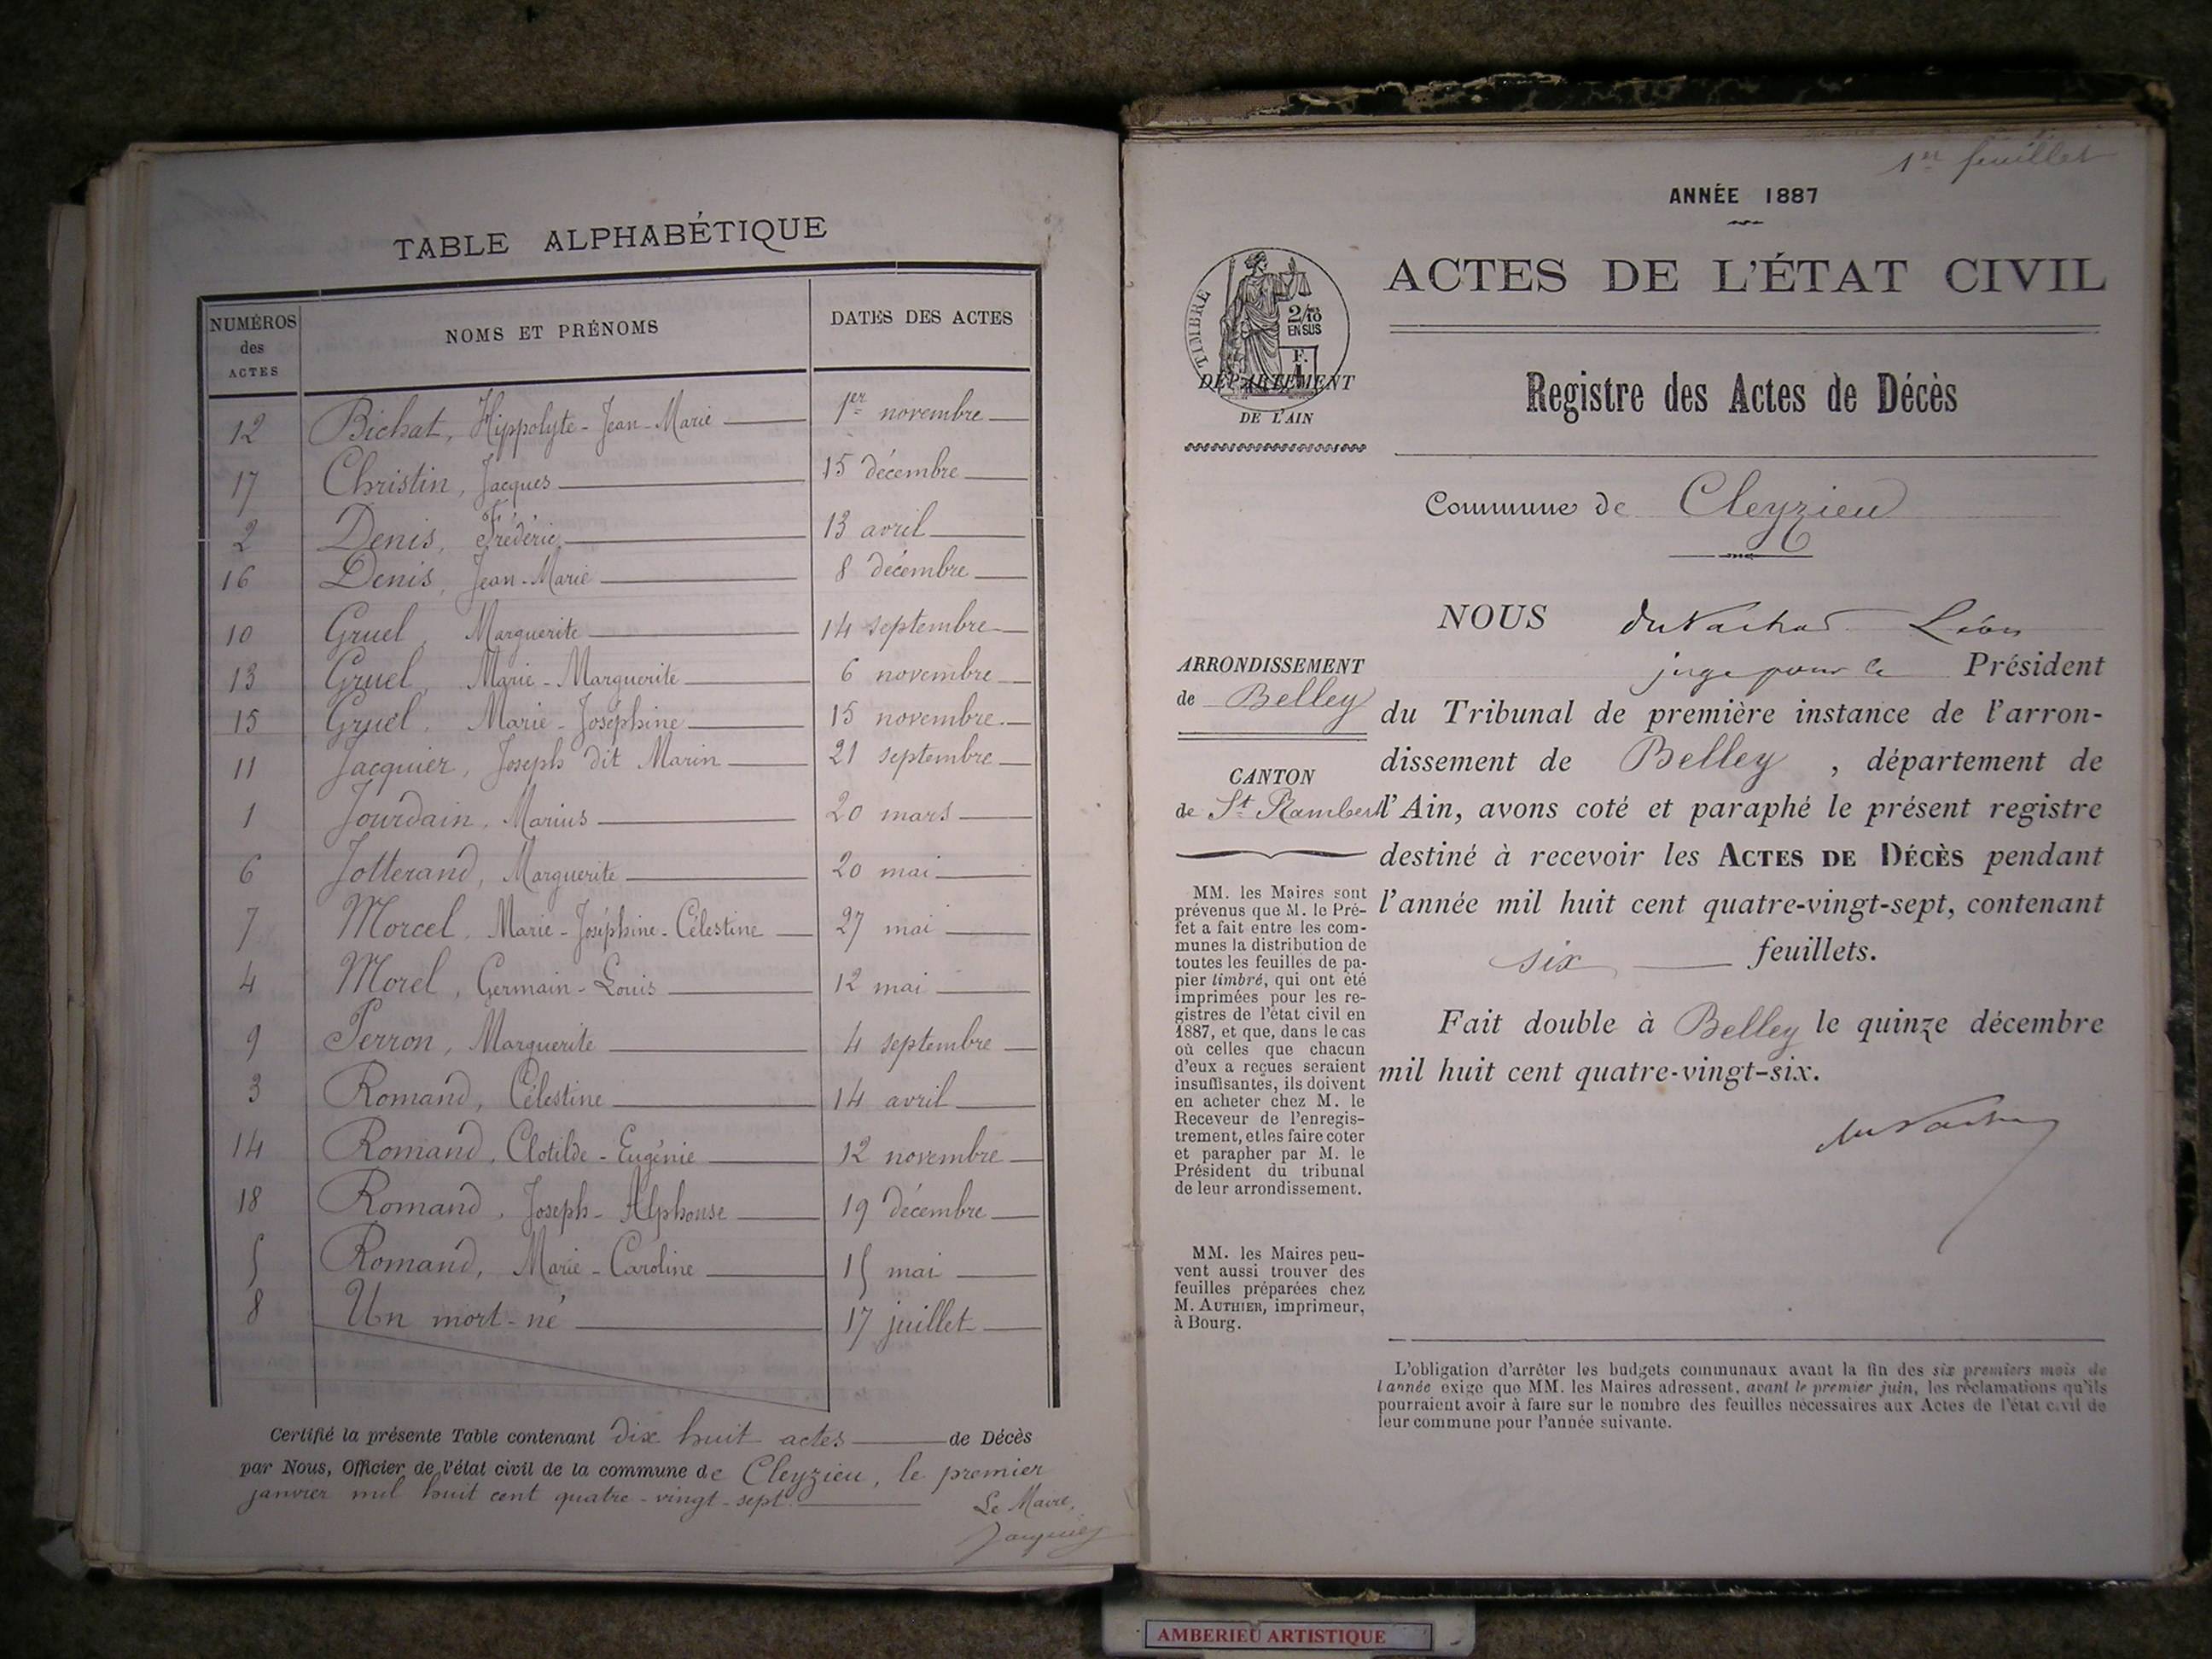 TABLE ALPHABÉTIQUE
NUMÉROS des ACTES NOMS ET PRÉNOMS DATES DES ACTES
12 Bichat, Hippolyte-Jean-Marie 1er novembre
17 Christin, Jacques 15 décembre
2 Denis, Frédéric 13 avril
16 Denis, Jean-Marie 8 décembre
10 Gruel, Marguerite 14 septembre
13 Gruel, Marie-Marguerite 6 novembre
15 Gruel, Marie-Joséphine 15 novembre
11 Jacquier, Joseph dit Marin 21 septembre
1 Jourdain, Marius 20 mars
6 Jotterand, Marguerite 20 mai
7 Morcel, Marie-Joséphine-Célestine 27 mai
4 Morel, Germain-Louis 12 mai
9 Perron, Marguerite 4 septembre
3 Romand, Célestine 14 avril
14 Romand, Clotilde-Eugénie 12 novembre
18 Romand, Joseph-Alphonse 19 décembre
5 Romand, Marie-Caroline 15 mai
8 Un mort-né 17 juillet
Certifié la présente Table contenant dix huit actes de Décès
par Nous, Officier de l'état civil de la commune de Cleyzieu, le premier
janvier mil huit cent quatre-vingt-sept.
Le Maire,
Jacquier
1er feuillet
ANNÉE 1887
ACTES DE L'ÉTAT CIVIL
TIMBRE
2/10
EN SUS
F.
DÉPARTEMENT
DE L'AIN
Registre des Actes de Décès
Commune de Cleyzieu
ARRONDISSEMENT
de Belley
CANTON
de St Rambert
MM. les Maires sont
prévenus que M. le Pré-
fet a fait entre les com-
munes la distribution de
toutes les feuilles de pa-
pier timbré, qui ont été
imprimées pour les re-
gistres de l'état civil en
1887, et que, dans le cas
où celles que chacun
d'eux a reçues seraient
insuffisantes, ils doivent
en acheter chez M. le
Receveur de l'enregis-
trement, et les faire coter
et parapher par M. le
Président du tribunal
de leur arrondissement.
MM. les Maires peu-
vent aussi trouver des
feuilles préparées chez
M. AUTHIER, imprimeur,
à Bourg.
NOUS Léon
juge pour le Président
du Tribunal de première instance de l'arron-
dissement de Belley, département de
l'Ain, avons coté et paraphé le présent registre
destiné à recevoir les ACTES DE DÉCÈS pendant
l'année mil huit cent quatre-vingt-sept, contenant
six feuillets.
Fait double à Belley le quinze décembre
mil huit cent quatre-vingt-six.
L'obligation d'arrêter les budgets communaux avant la fin des six premiers mois de
l'année exige que MM. les Maires adressent, avant le premier juin, les réclamations qu'ils
pourraient avoir à faire sur le nombre des feuilles nécessaires aux Actes de l'état civil de
leur commune pour l'année suivante.
AMBERIEU ARTISTIQUE